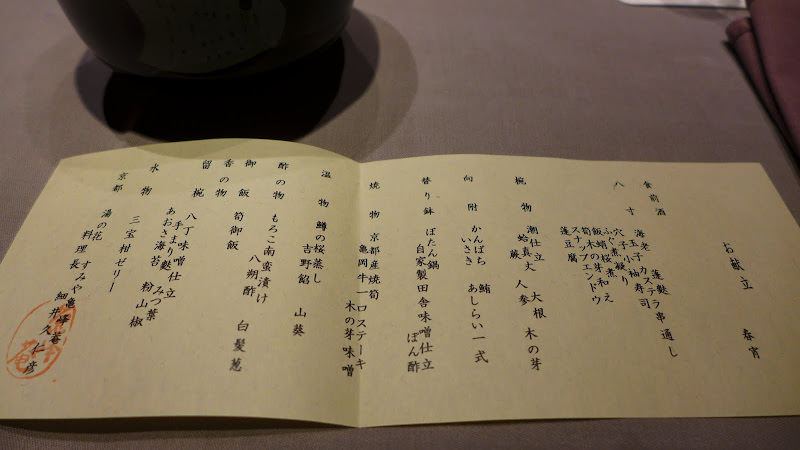 お献立　春宵
食前酒
八寸
海老　カステラ串通し
玉子　蓬麩
穴子小袖寿司
ふぐ煮凝り
飯蛸桜煮
筍木の芽和え
スナップエンドウ
蓬豆腐
椀物　潮仕立　大根　木の芽
蛤真丈　人参　蕨
向附　かんぱち　鮪　あしらい一式
いさき
替り鉢　ぼたん鍋
自家製田舎味噌仕立
ぽん酢
焼物　京都産焼筍　木の芽味噌
亀岡牛一口ステーキ
温物　鱒の桜蒸し
吉野餡　山葵
酢の物　もろこ南蛮漬け
八朔酢　白髪葱
御飯　筍御飯
香の物
留椀　八丁味噌仕立
手まり麩　みつ葉
あおさ海苔　粉山椒
水物　三宝柑ゼリー
京都　湯の花　すみや亀峰菴
料理長　細井久仁彦